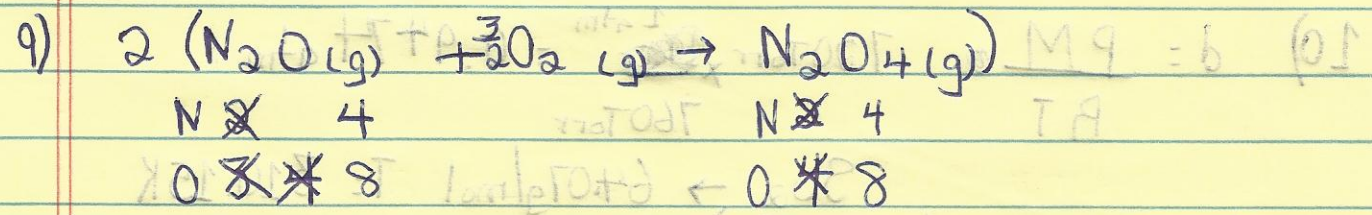 9) 2 (N₂O(g) + 3/2 O₂ (g) → N₂O₄(g))
N 2 4 N 2 4
O 3 4 8 O 4 8